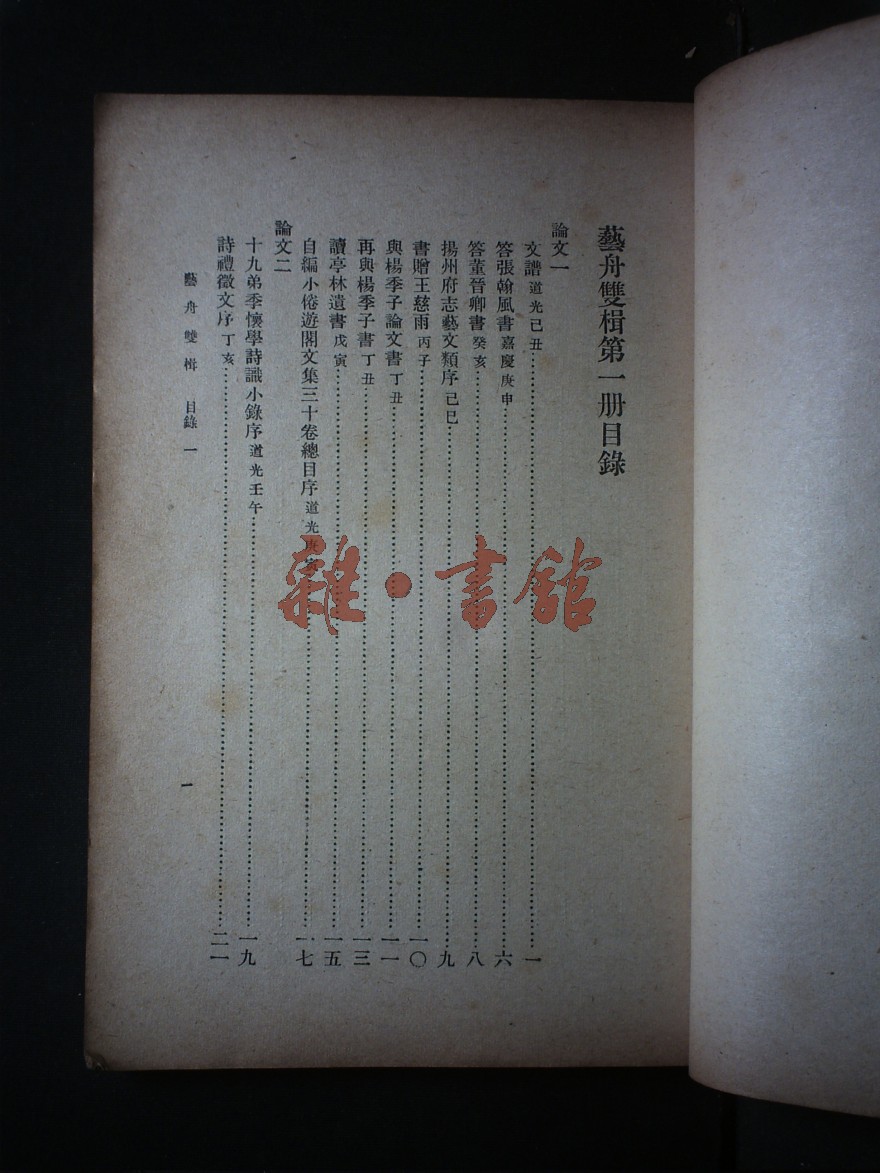 藝舟雙楫第一册目錄
論文一
文譜 道光己丑……一
答張翰風書 嘉慶庚申……六
答董晉卿書 癸亥……八
揚州府志藝文類序 己巳……九
書贈王慈雨 丙子……一〇
與楊季子論文書 丁丑……一一
再與楊季子書 丁丑……一三
讀亭林遺書 戊寅……一五
自編小倦遊閣文集三十卷總目序 道光庚寅……一七
論文二
十九弟季懷學詩識小錄序 道光壬午……一九
詩禮徵文序 丁亥……二一
藝舟雙楫 目錄一
一
雜·書館